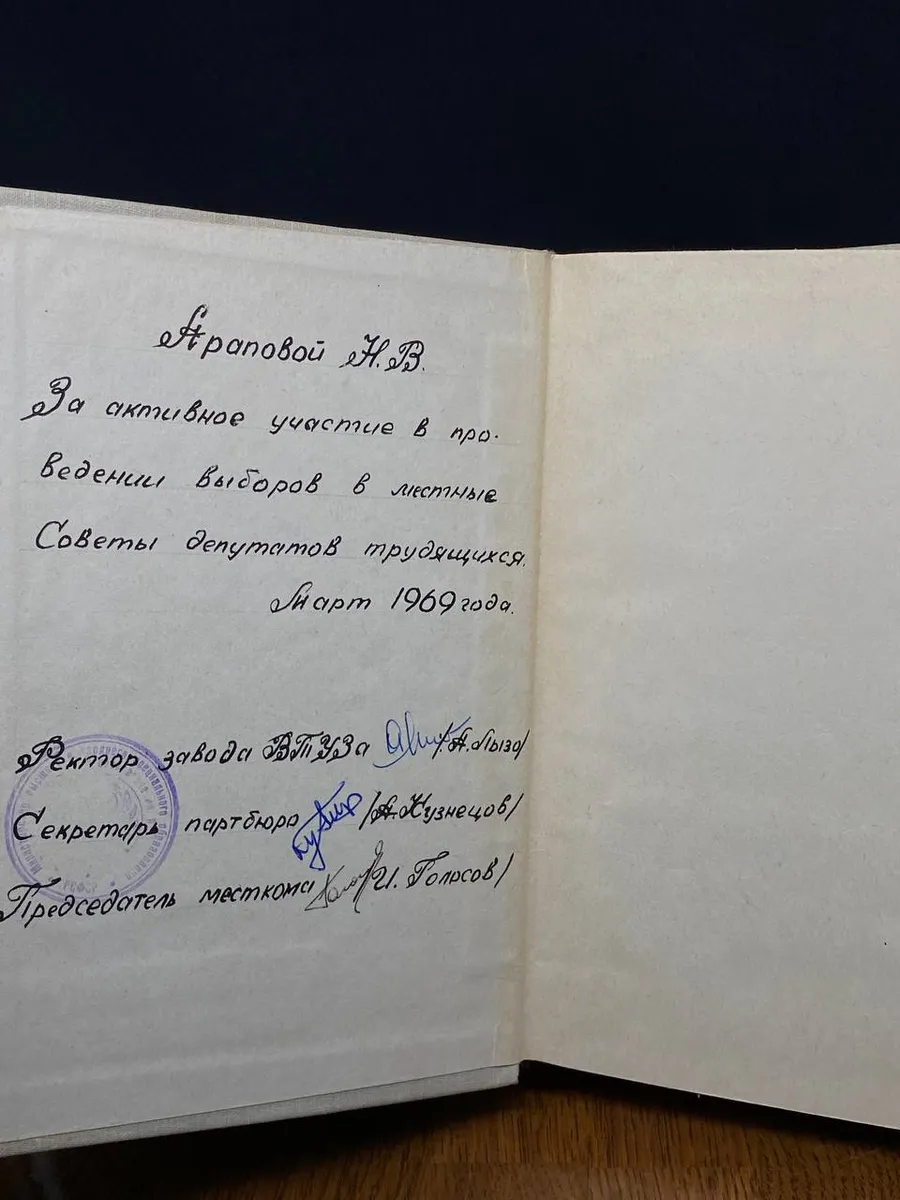 Араповой Н.В.
За активное участие в про-
ведении выборов в местные
Советы депутатов трудящихся.
Март 1969 года.
Ректор завода ВТУЗа /А. Лызо/
Секретарь партбюро /А. Кузнецов/
Председатель месткома /И. Голосов/
РСФСР